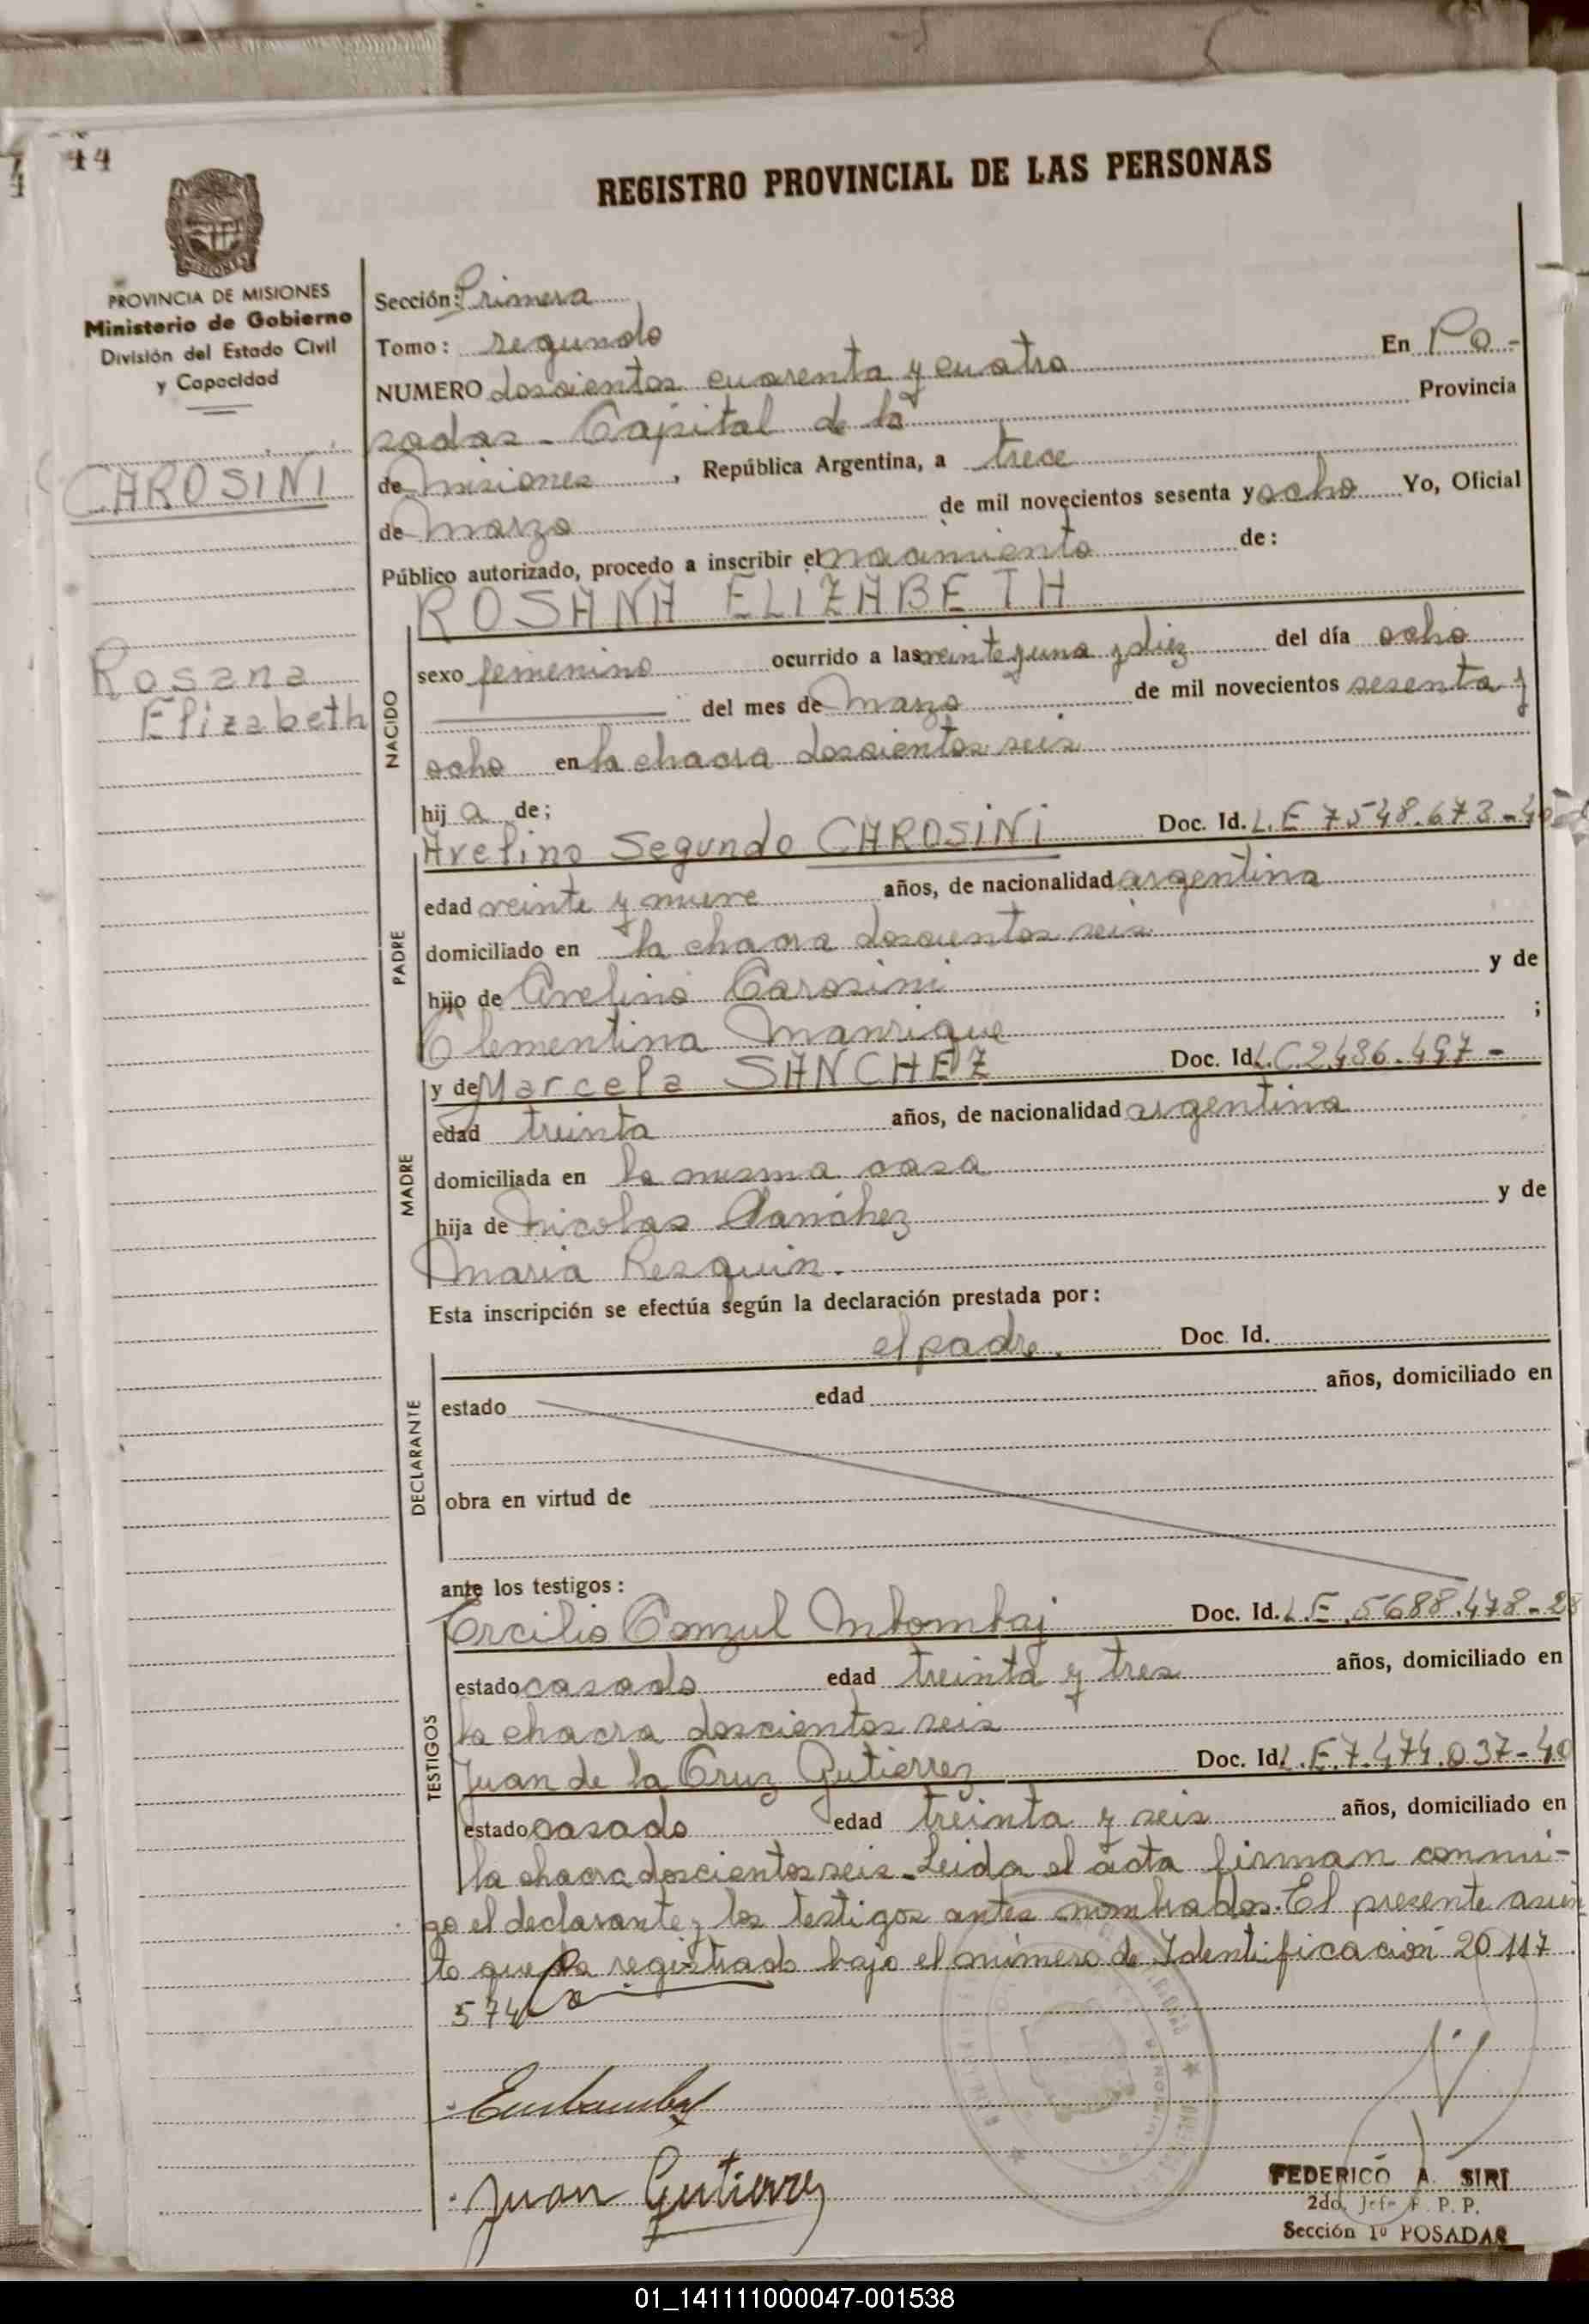 44
REGISTRO PROVINCIAL DE LAS PERSONAS
MISIONES
PROVINCIA DE MISIONES
Ministerio de Gobierno
División del Estado Civil
y Capacidad
CAROSINI
Rosana
Elizabeth
Sección: Primera
Tomo: segundo
NUMERO doscientos cuarenta y cuatro En Po-
sadas - Capital de la Provincia
de Misiones, República Argentina, a trece
de Marzo de mil novecientos sesenta y ocho Yo, Oficial
Público autorizado, procedo a inscribir el nacimiento de:
ROSANA ELIZABETH
NACIDO
sexo femenino ocurrido a las veinte y una y diez del día ocho
del mes de Marzo de mil novecientos sesenta y
ocho en la chacra doscientos seis
hij a de;
Avelino Segundo CAROSINI Doc. Id. L.E 7548.673-40
PADRE
edad veinte y nueve años, de nacionalidad argentina
domiciliado en la chacra doscientos seis
hijo de Avelino Carosini y de
Clementina Manrique ;
y de Marcela SANCHEZ Doc. Id. L.C 2486.497-
MADRE
edad treinta años, de nacionalidad argentina
domiciliada en la misma casa
hija de Nicolas Sanchez y de
Maria Resquin.
Esta inscripción se efectúa según la declaración prestada por:
el padre. Doc. Id.
DECLARANTE
estado edad años, domiciliado en
obra en virtud de
ante los testigos:
Ercilio Conzul Doc. Id. L.E. 5688.478-28
TESTIGOS
estado casado edad treinta y tres años, domiciliado en
la chacra doscientos seis
Juan de la Cruz Gutierrez Doc. Id. L.E.7.474.037-40
estado casado edad treinta y seis años, domiciliado en
la chacra doscientos seis. Leida el acta firman conmi-
go el declarante y los testigos antes nombrados. El presente asien
to queda registrado bajo el número de Identificación 20 117
574
Juan Gutierrez
FEDERICO A. SIRI
2do. Jefe R. P. P.
Sección 1º POSADAS
01_141111000047-001538